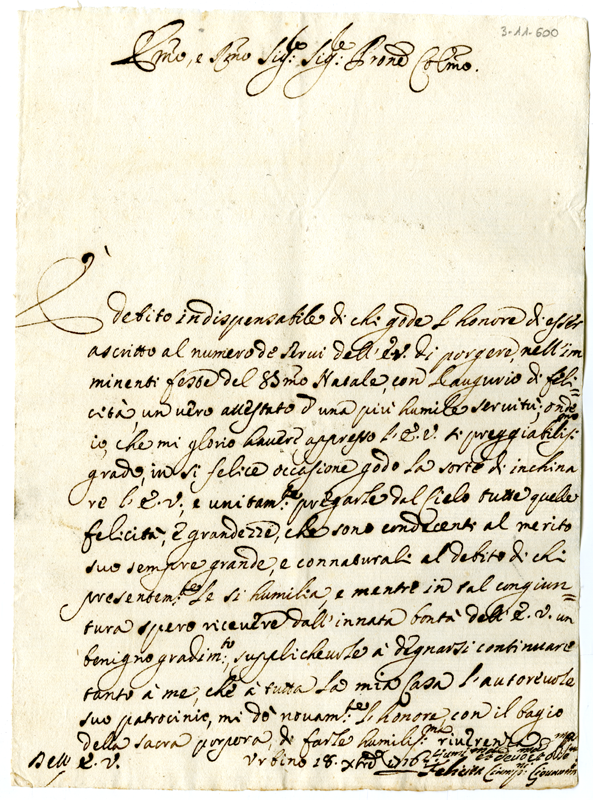 3-11-600
Em̃o, e Rm̃o Sig.re Sig.re Prone Col.mo.
È debito indispensabile di chi gode l'honore di esser
ascritto al numero de servi dell'E.V. di porgere, nell'im
minenti feste del SS.mo Natale, con l'augurio di feli=
cità un vero attestato d'una più humile servitù; onde
io, che mi glorio havere appresso l'E.V. si preggiabiliss.mo
grado, in sì felice occasione godo la sorte di inchina
re l'E.V., e unitam.te pregarle dal Cielo tutte quelle
felicità, e grandezze, che sono condecenti al merito
suo sempre grande, e connaturali al debito di chi
presentem.te Le si humilia, e mentre in tal congiun=
tura spero ricevere dall'innata bontà dell'E.V. un
benigno gradim.to, supplichevole à degnarsi continuare
tanto à me, che à tutta la mia Casa l'autorevole
suo patrocinio, mi dò novam.te l'honore, con il bagio
della sacra porpora, di farle humiliss.ma riverenza
Dell'E.V. Urbino 18. Xbre